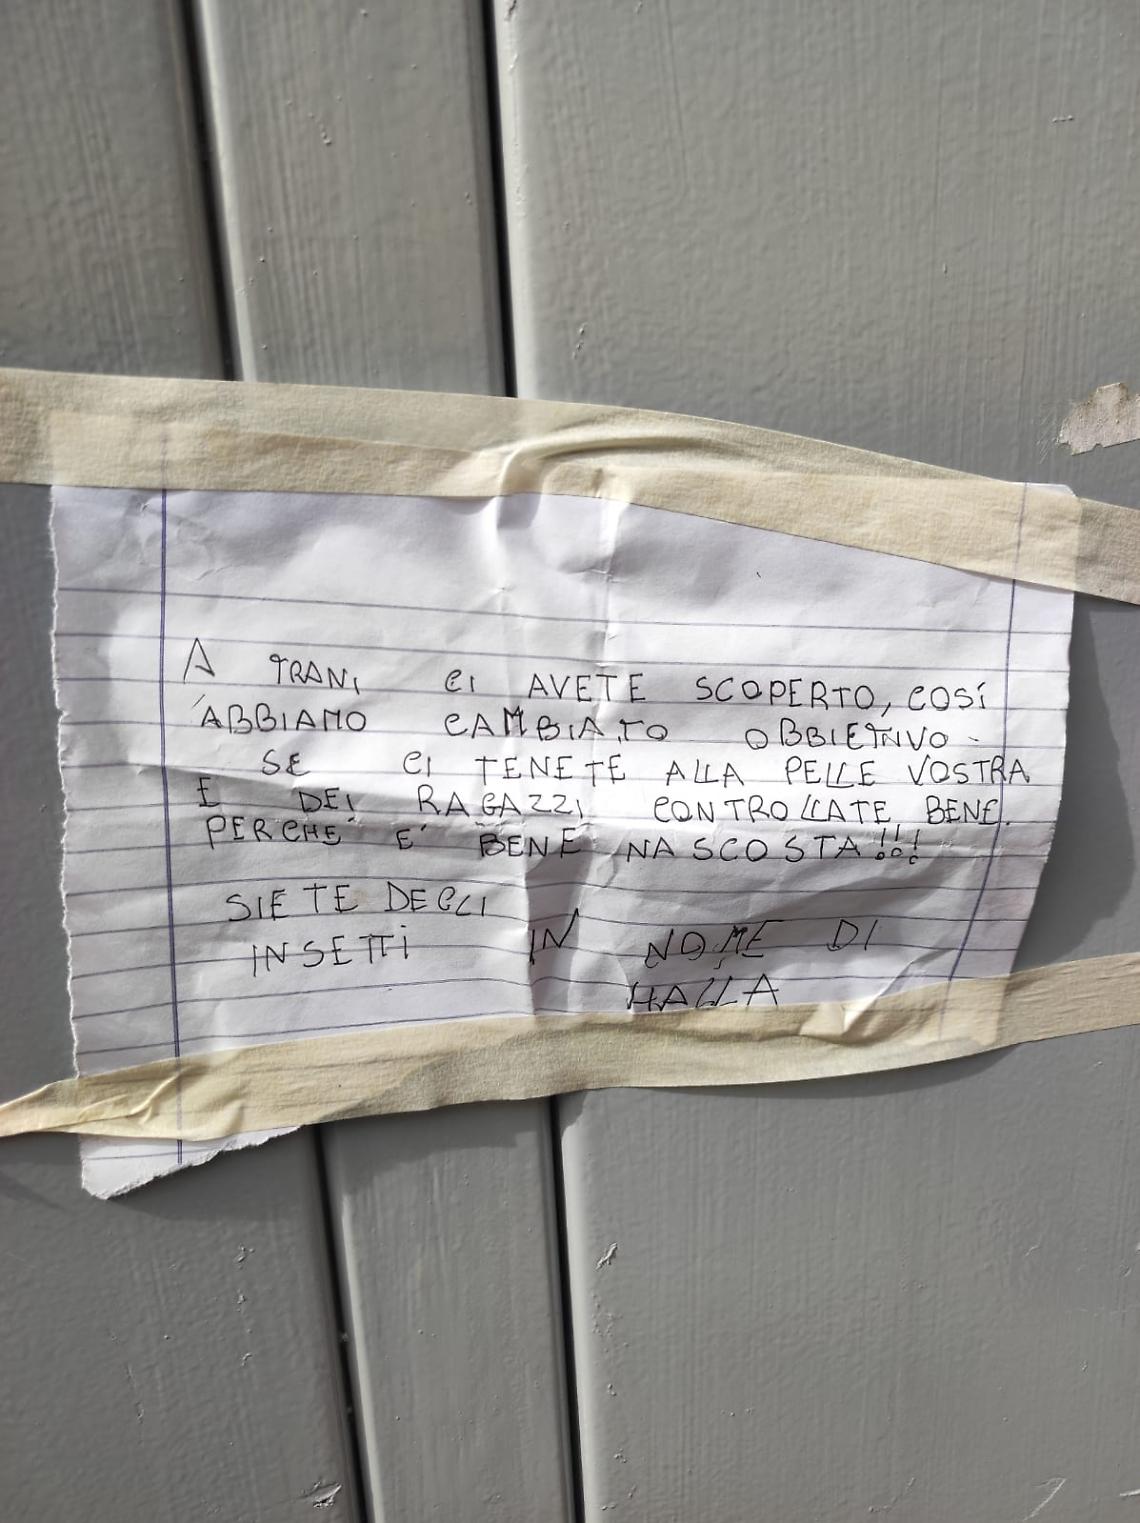 A TRANI CI AVETE SCOPERTO, COSÍ
ABBIAMO CAMBIATO OBBIETTIVO.
SE CI TENETE ALLA PELLE VOSTRA
E DEI RAGAZZI CONTROLLATE BENE.
PERCHE' E' BENE NASCOSTA!!!
SIETE DEGLI
INSETTI IN NOME DI
HALLA